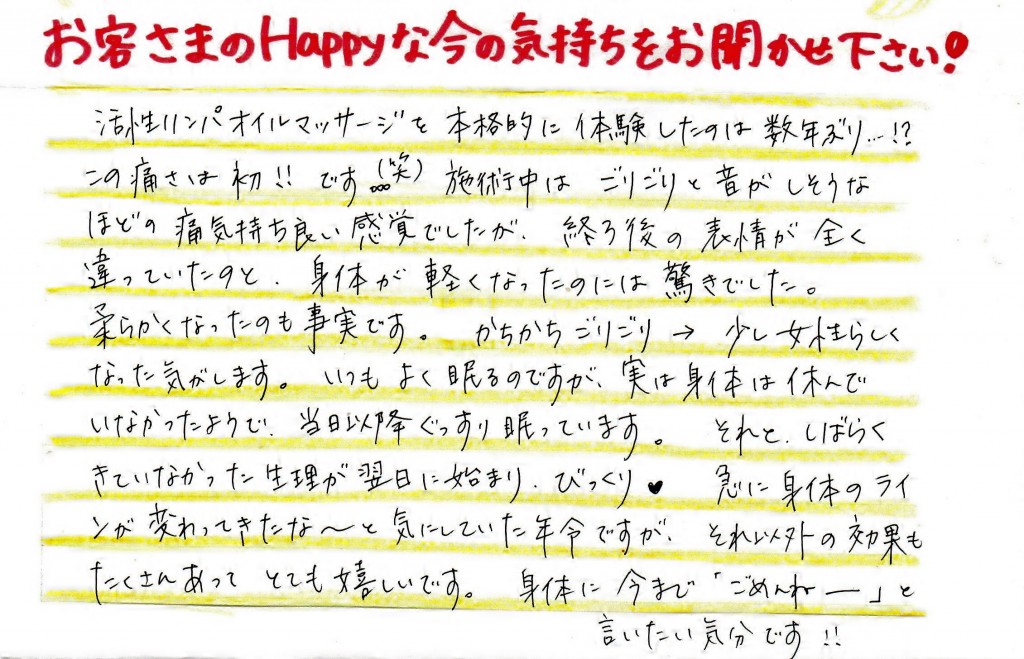 お客さまのHappyな今の気持ちをお聞かせ下さい!
活性リンパオイルマッサージを本格的に体験したのは数年ぶり…!?
この痛さは初!!です(笑) 施術中はごりごりと音がしそうな
ほどの痛気持ち良い感覚でしたが、終る後の表情が全く
違っていたのと、身体が軽くなったのには驚きでした。
柔らかくなったのも事実です。かちかちごりごり→少し女性らしく
なった気がします。いつもよく眠るのですが、実は身体は休んで
いなかったようで、当日以降ぐっすり眠っています。それと、しばらく
きていなかった生理が翌日に始まり、びっくり♥ 急に身体のライ
ンが変わってきたな〜と気にしていた年令ですが、それ以外の効果も
たくさんあってとても嬉しいです。身体に今まで「ごめんねー」と
言いたい気分です!!